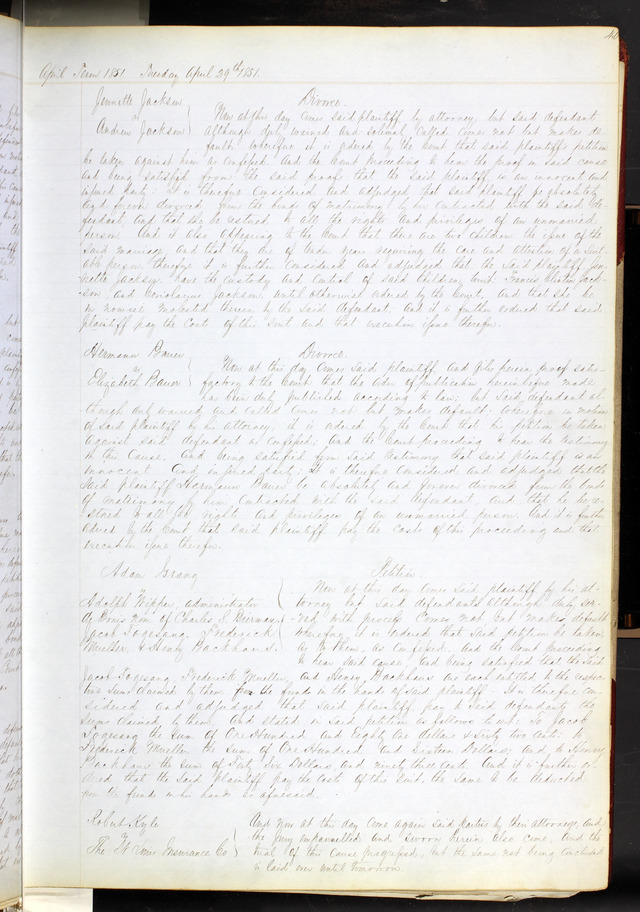 April Term 1851 Tuesday April 29th 1851.
Jennette Jackson
vs
Andrew Jackson
Divorce.
Now at this day comes said plaintiff by attorney, but said defendant
although duly warned and solemnly called comes not but makes de-
fault; wherefore it is ordered by the Court that said plaintiff's petition
be taken against him as confessed. And the Court proceeding to hear the proof in said cause
and being satisfied from the said proofs that the said plaintiff is an innocent and
injured party: It is therefore considered and adjudged that said plaintiff be absolutely
and forever divorced from the bonds of matrimony by her contracted with the said de-
fendant, and that she be restored to all the rights and privileges of an unmarried
person. And it also appearing to the Court that there are two children the issue of the
said marriage and that they are of tender years requiring the care and attention of a suit-
able person therefore it is further considered and adjudged that the said plaintiff Jen-
nette Jackson have the custody and control of said children, Francis Jack-
son, and Jackson, until otherwise ordered by the Court, and that she be
in nowise molested therein by the said defendant. And it is further ordered that said
plaintiff pay the Cost of this Suit and that execution issue therefor.
Hermann Bauer
vs
Elizabeth Bauer
Divorce.
Now at this day comes said plaintiff, and files herein proof satis-
factory to the Court that the order of Publication herein before made
has been duly published according to law; but said defendant al-
though duly warned and called comes not but makes default: wherefore on motion
of said plaintiff by his attorney, it is ordered by the Court that his petition be taken
against said defendant as confessed; and the Court proceeding to hear the testimony
in this Cause, and being satisfied from said testimony that said plaintiff is an
innocent and injured party; It is therefore considered and adjudged that the
said plaintiff Hermann Bauer be absolutely and forever divorced from the bonds
of matrimony by him contracted with the said defendant, and that he be re-
stored to all the rights and privileges of an unmarried person. And it is further
ordered by the Court that said plaintiff pay the costs of this proceeding and that
execution issue therefor.
Adam
vs
Adolph Wippen, administrator
de bonis non of Charles
Jacob Togesang, Frederick
Mueller & Henry Backhaus.
Petition.
Now at this day comes said plaintiff by his at-
torney but said defendants although duly ser-
ved with process comes not but makes default
wherefore it is ordered that said petition be taken
as to them, as confessed. And the Court proceeding
to hear said cause, and being satisfied that the said
Jacob Togesang, Frederick Mueller, and Henry Backhaus are each entitled to the respec-
tive sums claimed by them from the funds in the hands of said plaintiff. It is therefore con-
sidered and adjudged that said plaintiff pay to said defendants the
sums claimed by them and stated in said petition as follows to wit: To Jacob
Togesang the sum of One Hundred and Eighty one dollars & sixty two cents: to
Frederick Mueller the sum of One Hundred and Sixteen Dollars; and to Henry
Backhaus the sum of Forty Dollars and ninety three cents. And it is further or-
dered that the said plaintiff pay the costs of this Suit, the same to be deducted
from the funds in his hands so aforesaid.
Robert Kyle
vs
The Insurance Co
And now at this day come again said parties by their attorneys, and
the jury empannelled and sworn herein also come, and the
trial of this cause progressed, but the same not being concluded
is laid over until tomorrow.